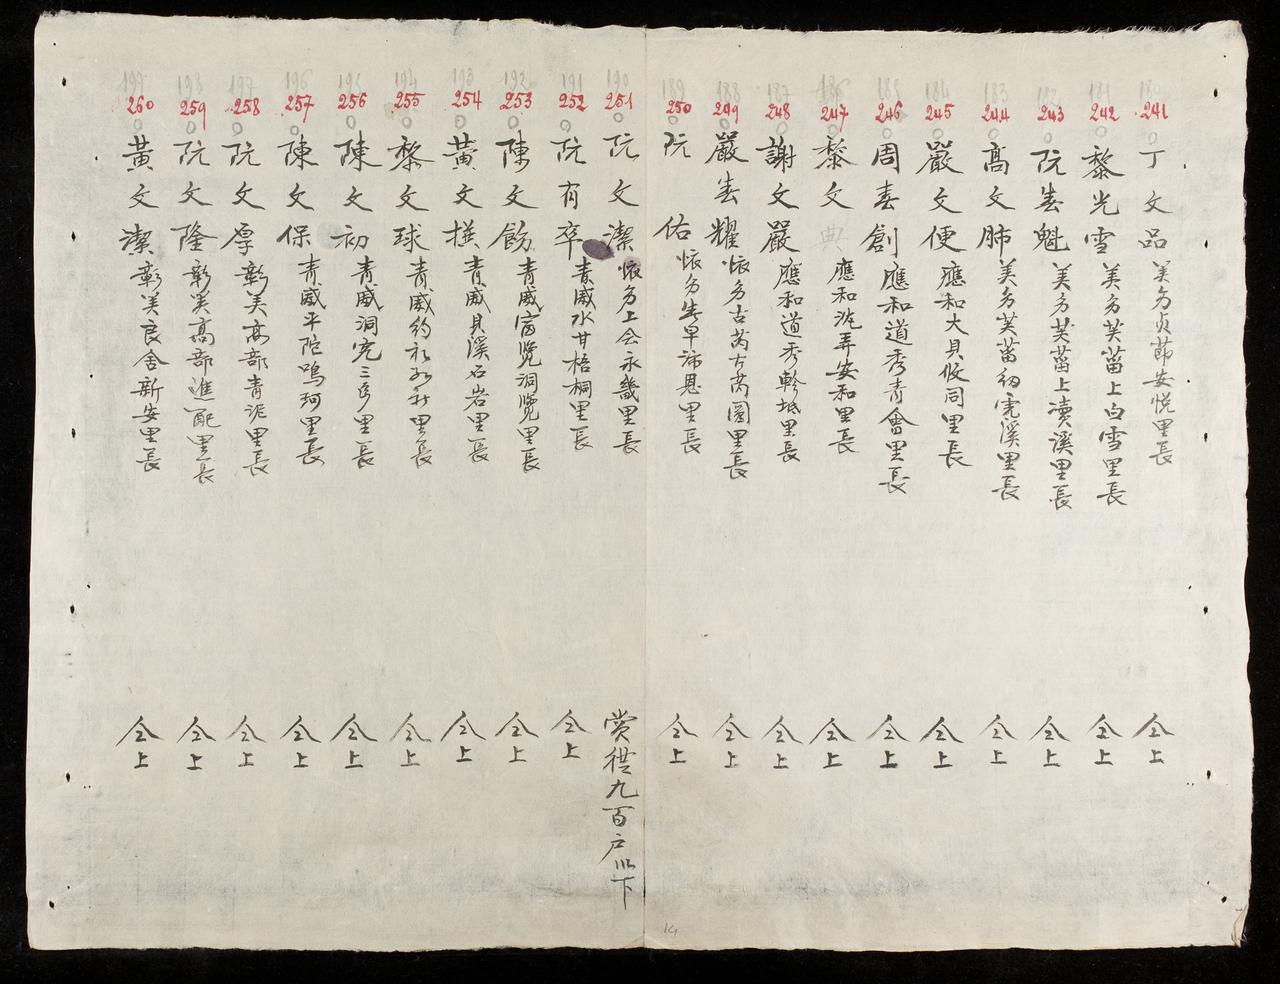 241
丁文品 美多貞莭安悅里長 仝上
242
黎光雪 美多芙蒥上白雪里長 仝上
243
阮春魁 美多芙蒥上瀆溪里長 仝上
244
高文肺 美多芙蒥初溪里長 仝上
245
嚴文便 應和大貝佼同里長 仝上
246
周春創 應和道秀青會里長 仝上
247
黎文典 應和沇弄安和里長 仝上
248
謝文嚴 應和道秀軫坻里長 仝上
249
嚴春耀 懷多古芮古芮園里長 仝上
250
阮佑 懷多里長 仝上
251
阮文潔 懷多上会永畿里長 賞襟九百户以下
252
阮有卒 青威水甘梧桐里長 仝上
253
陳文飭 青威富覽洞覽里長 仝上
254
黃文撰 青威貝溪石岩里長 仝上
255
黎文球 青威約礼里長 仝上
256
陳文初 青威洞完三多里長 仝上
257
陳文保 青威平陀鳴珂里長 仝上
258
阮文厚 彰美高部青泥里長 仝上
259
阮文隆 彰美高部進配里長 仝上
260
黃文潔 彰美良舍新安里長 仝上